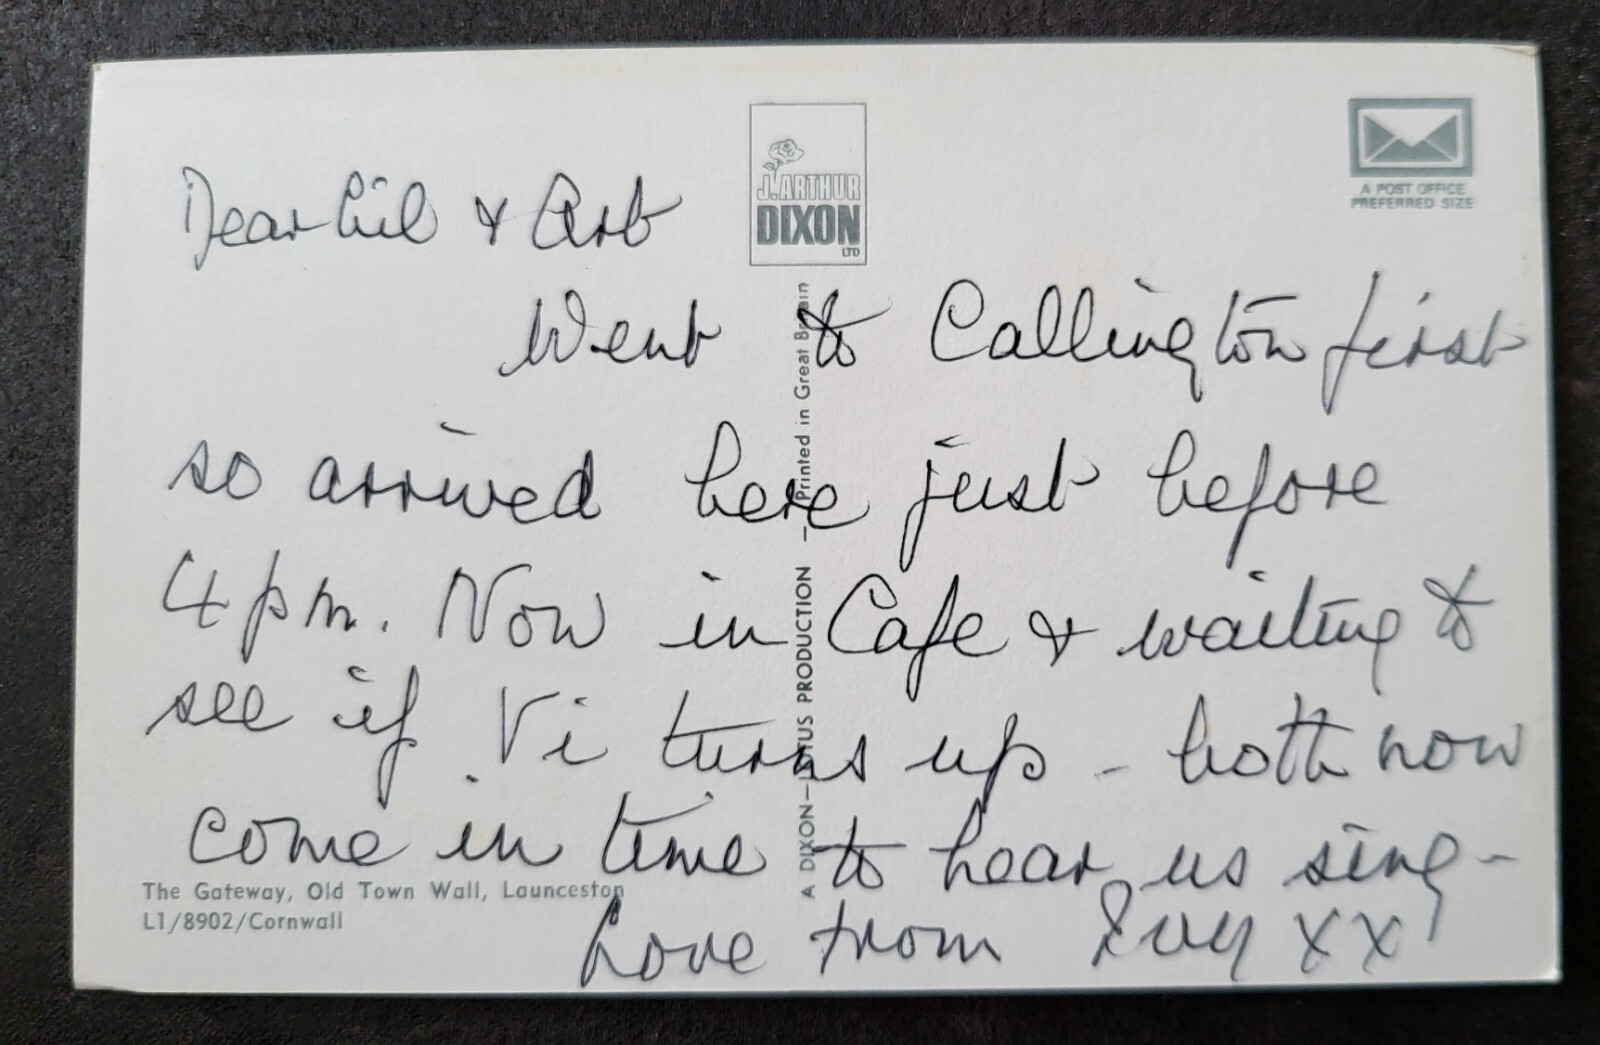 Dear Lil & Art
Went to Callington first
so arrived here just before
4 pm. Now in Cafe & waiting to
see if Vi turns up - both now
come in time to hear us sing -
Love from Ivy XX
J. ARTHUR
DIXON
LTD
A POST OFFICE
PREFERRED SIZE
A DIXON—LOTUS PRODUCTION — Printed in Great Britain
The Gateway, Old Town Wall, Launceston
L1/8902/Cornwall